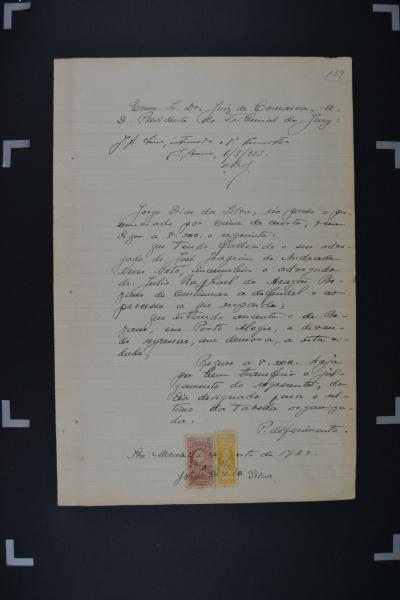 139
Exmo. Sr. Dr. Juiz de Comarca, M.
D. Presidente do Tribunal do Jury:
J. A. Sim, intimado o Dr. Promotor
6/8/923.
Jorge Dias da Silva, réo preso e pro-
nunciado por crime de morte, vem
dizer a V. exa. o seguinte:
que tendo fallecido o seu advo-
gado dr. José Joaquim de Andrade
Neves Neto, incumbiu o advogado
dr. Julio Raphael de Aragão Bo-
zano de continuar a defendel-o no
processo a que responde;
que estando ausente o dr. Bo-
zano, em Porto Alegre, e deven-
do regressar, sem demora, a esta ci-
dade,
Requer a V. exa. haja
por bem transferir o jul-
gamento do requerente, do
dia designado para o ul-
timo da tabella organiza-
da.
P. deferimento.
Sta. Maria, de 1923
Jorge Dias da Silva